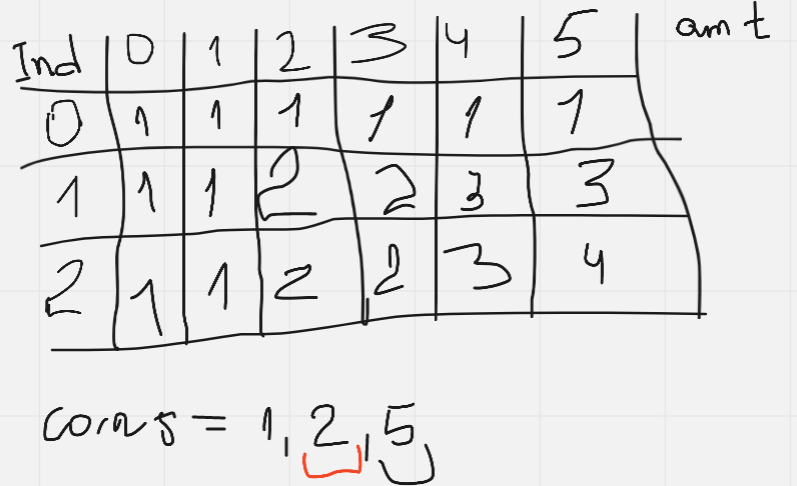 Ind 0 1 2 3 4 5 amt
0 1 1 1 1 1 1
1 1 1 2 2 3 3
2 1 1 2 2 3 4
coins = 1, 2, 5